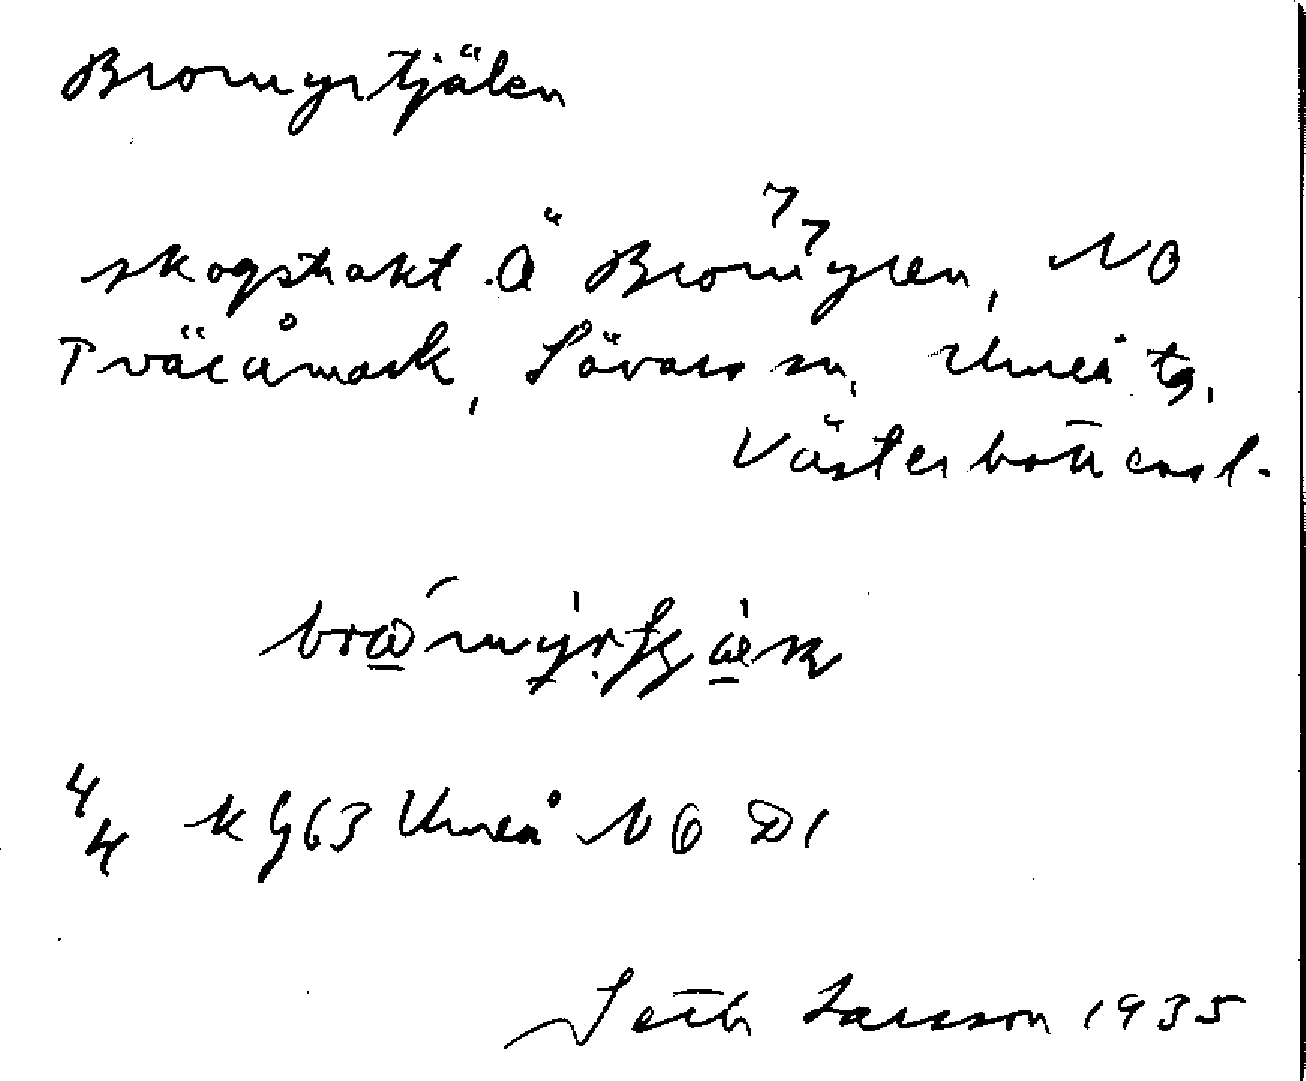 Bromyrtjälen
skogstrakt Ö Bromyren, NO
Tväråmark, Sävars sn, Umeå tg,
Västerbottens l.
4/4 K G63 Umeå NO D1
Seth Larsson 1935